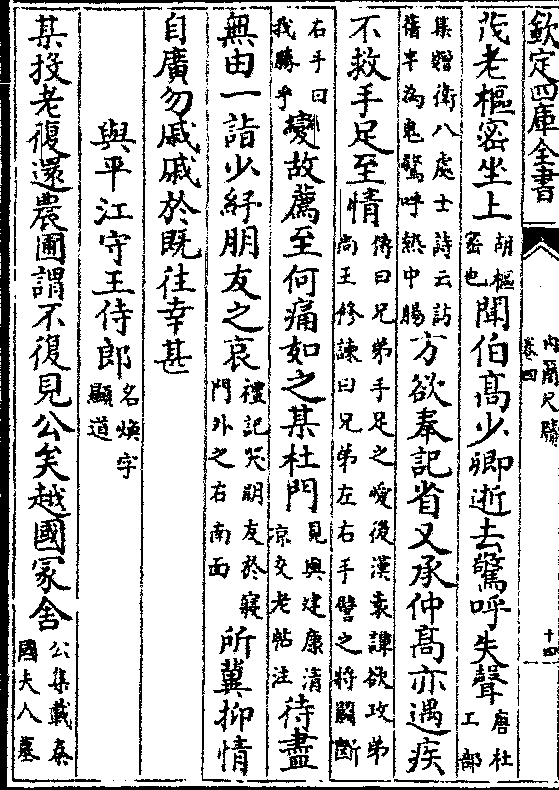 欽定四庫全書
內簡尺牘
卷四
十四
茂老樞密坐上胡樞密也聞伯髙少卿逝去驚呼失聲唐杜工部
集贈衛八處士詩云訪舊半為鬼驚呼熱中腸方欲奉記省又承仲髙亦遇疾
不救手足至情傳曰兄弟手足之愛後漢袁譚欲攻弟尚王修諫曰兄弟左右手譬之將鬭斷
右手曰我勝乎變故薦至何痛如之某杜門見與建康清凉交老帖注待盡
無由一詣少紓朋友之哀禮記哭朋友於寢門外之右南面所冀抑情
自廣勿戚戚於既往幸甚
與平江守王侍郎名煥字顯道
某投老復還農圃謂不復見公矣越國冡舍公集載秦國夫人墓